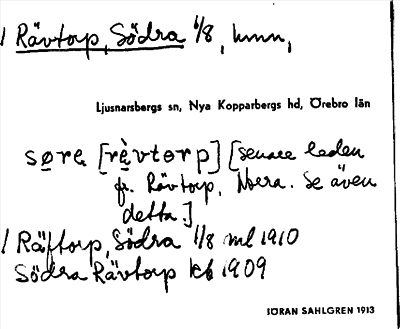 Rävtorp, Södra 1/8, hmn,
Ljusnarsbergs sn, Nya Kopparbergs hd, Örebro län
sørɐ [rèvtorp] [senare leden
fr. Rävtorp, Norra. Se även
detta.]
Räftorp, Södra 1/8 ml 1910
Södra Rävtorp kb 1909
JÖRAN SAHLGREN 1913